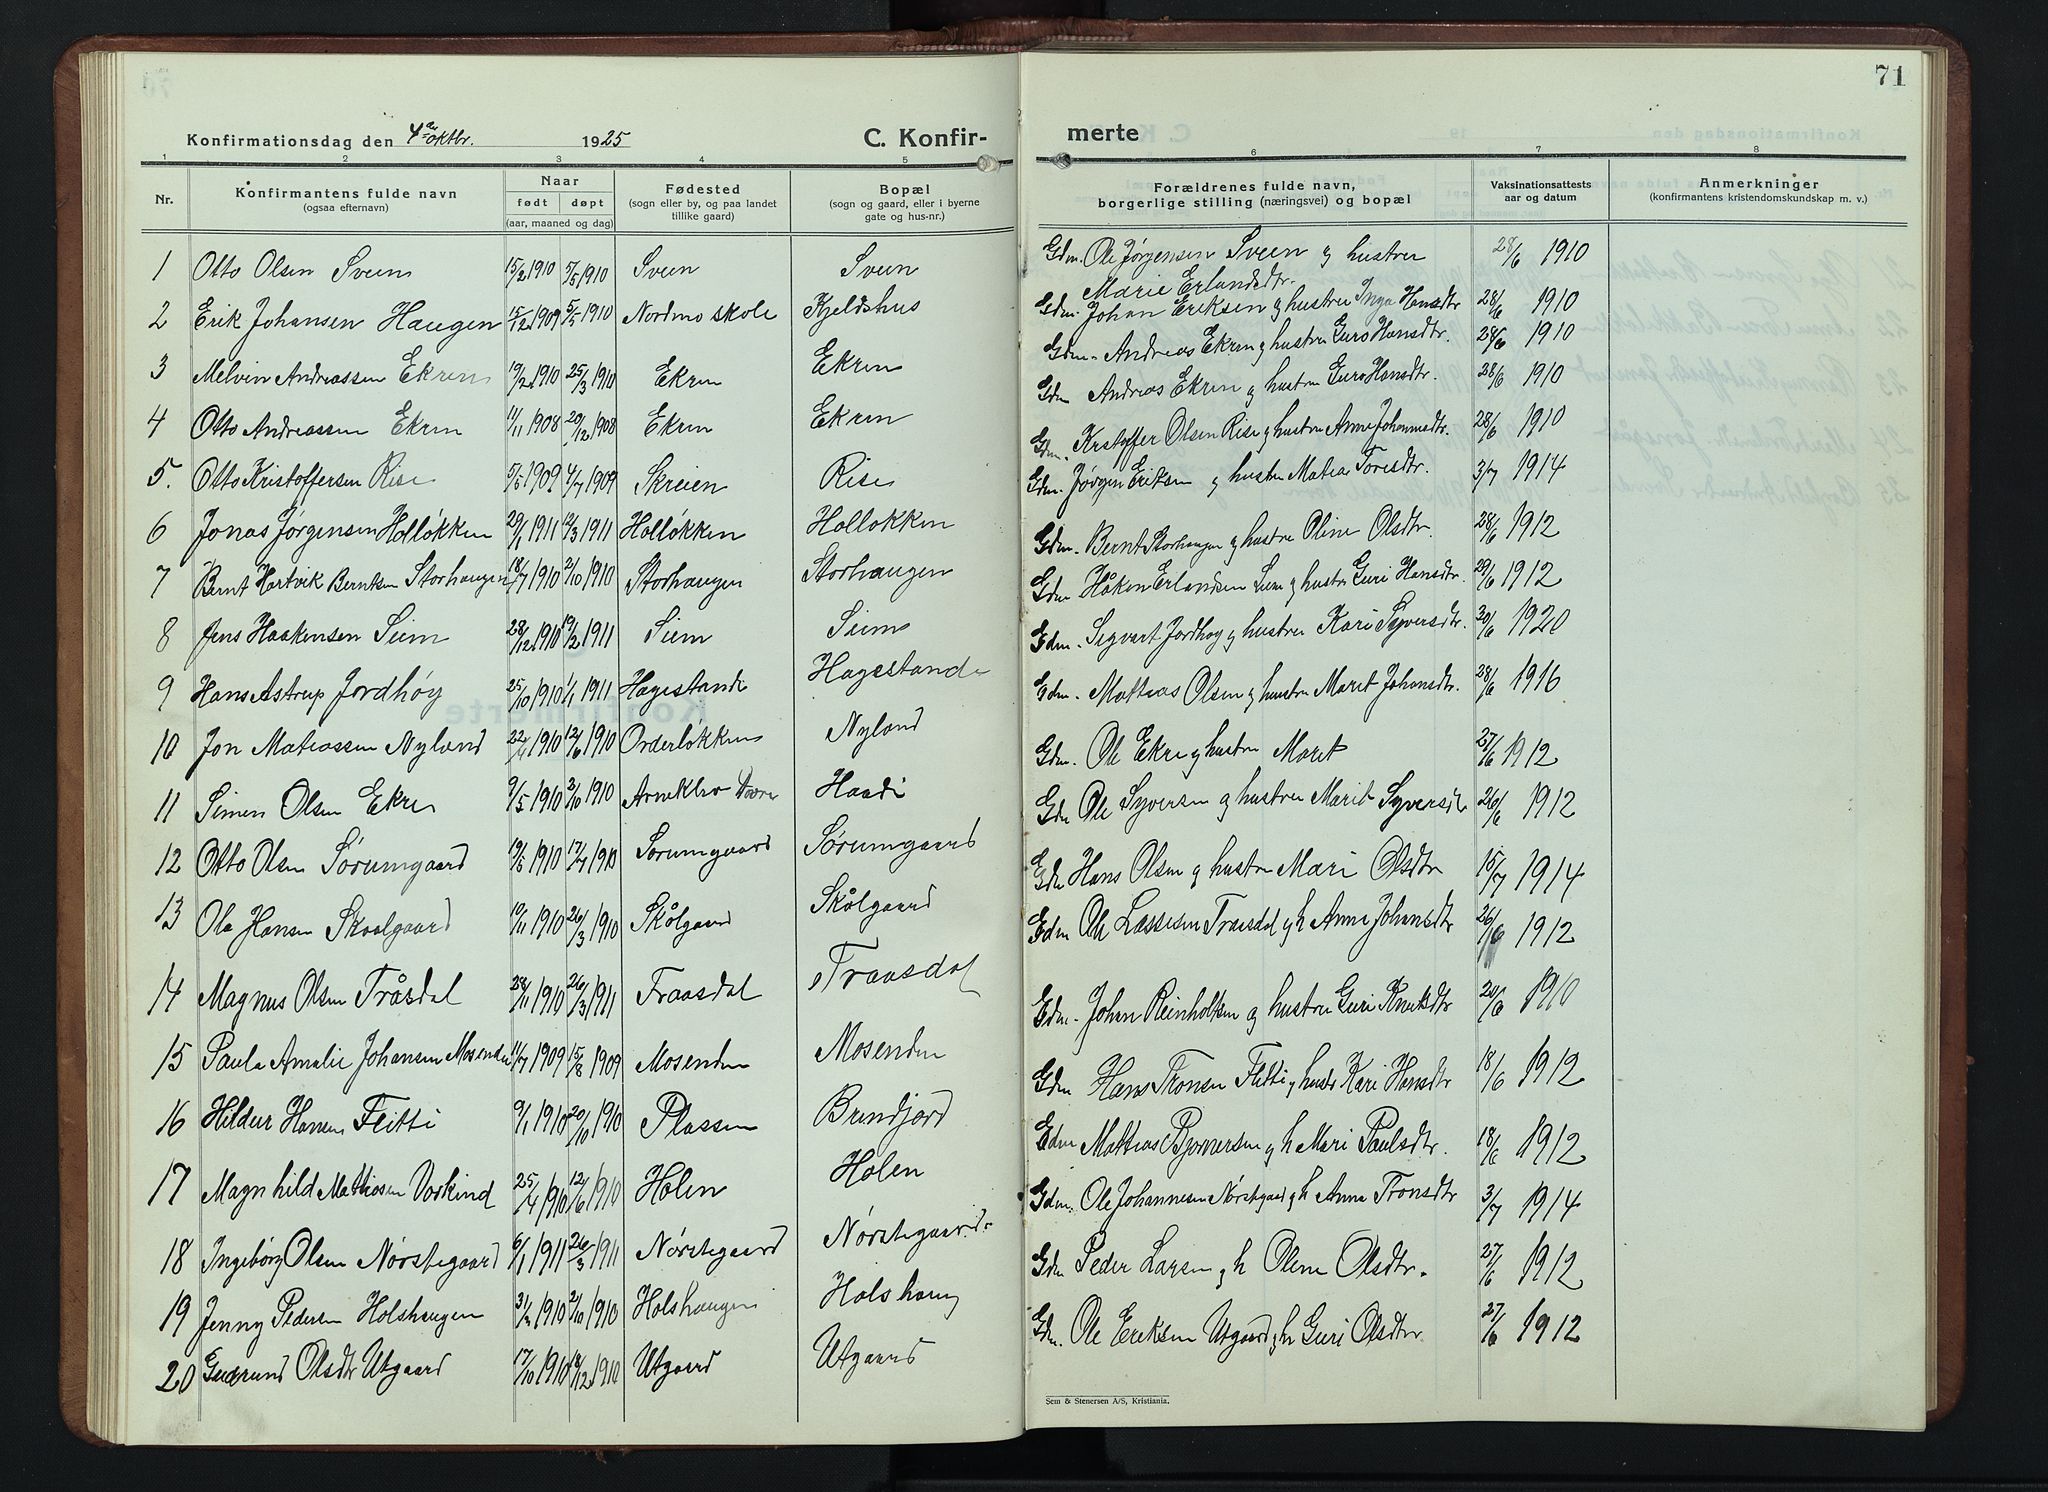 71
Konfirmationsdag den 4de oktbr. 1925 C. Konfir-
merte
1 2 3 4 5 6 7 8
Nr.
Konfirmantens fulde navn
(ogsaa efternavn)
Naar
født døpt
(aar, maaned og dag)
Fødested
(sogn eller by, og paa landet
tillike gaard)
Bopæl
(sogn og gaard, eller i byerne
gate og hus-nr.)
Forældrenes fulde navn,
borgerlige stilling (næringsvei) og bopæl
Vaksinationsattests
aar og datum
Anmerkninger
(konfirmantens kristendomskundskap m. v.)
1 Otto Olsen Sveen 15/2 1910 5/5 1910 Sveen Sveen
2 Erik Johansen Haugen 15/12 1909 5/5 1910 Nordmo skole Kjeldshus
3 Melvin Andreassen Ekren 19/2 1910 25/3 1910 Ekren Ekren
4 Otto Andreassen Ekren 11/11 1908 20/12 1908 Ekren Ekren
5. Otto Kristoffersen Rise 5/5 1909 4/7 1909 Skreien Rise
6 Jonas Jørgensen Holløkken 29/1 1911 12/3 1911 Holløkken Holløkken
7 Bernt Hartvik Berntsen Storhaugen 18/7 1910 2/10 1910 Storhaugen Storhaugen
8 Jens Haakensen Siem 28/12 1910 19/2 1911 Siem Siem
9 Hans Astrup Jordhøy 25/10 1910 1/1 1911 Hagestande Hagestande
10 Jon Matiassen Nyland 22/4 1910 12/6 1910 Orderløkken Nyland
11 Simen Olsen Ekre 9/5 1910 2/10 1910 Arneklev Haadi
12 Otto Olsen Sørumgaard 19/5 1910 17/7 1910 Sørumgaard Sørumgaard
13 Ola Hansen Skaalgaard 1910 26/3 1910 Skålgaard Skålgaard
14 Magnus Olsen Tråsdal 28/11 1910 26/3 1911 Traasdal Traasdal
15 Paula Amalie Johansen Mosenden 11/7 1909 15/8 1909 Mosenden Mosenden
16 Hildur Hansen Flitti 9/1 1910 20/10 1910 Plassen Brendjord
17 Magnhild Mathiasen Vorkind 25/4 1910 12/6 1910 Holen Holen
18 Ingebörg Olsen Nørstegaard 6/1 1911 26/3 1911 Nørstegaard Nørstegaard
19 Jenny Pedersen Holshaugen 1910 2/10 1910 Holshaugen Holshaug
20 Gudrund Olsdtr Utgaard 17/10 1910 18/12 1910 Utgaard Utgaard
Gdm. Ole Jørgensen Sveen og hustru 28/6 1910
Marie Erlandsdtr.
Gdm. Johan Eriksen og hustru Inga Hansdtr 28/6 1910
Gdm. Andreas Ekren og hustru Guro Hansdtr. 28/6 1910
Gdm Andreas Ekren og hustru Guro Hansdtr. 28/6 1910
Gdm. Kristoffer Olsen Rise og hustru Anne Johannesdtr. 28/6 1910
Gdm. Jørgen Eriksen og hustru Matea Toresdtr. 3/7 1914
Gdm. Bernt Storhaugen og hustru Oline Olsdtr. 28/6 1912
Gdm Håken Erlandsen Siem og hustru Guri Hansdtr. 29/6 1912
Gdm. Sigvart Jordhøy og hustru Kari Syversdtr. 30/6 1920
Gdm. Mattias Olsen og hustru Marit Johansdtr. 28/6 1916
Gdm. Ole Ekre og hustru Marit 27/6 1912
Gdm Ole Syversen og hustru Marit Syversdtr 26/6 1912
Gdm Hans Olsen og hustru Mari Olsdtr 15/7 1914
Gdm Ole Lassesen Traasdal og h Anne Johansdtr 26/6 1912
Gdm. Johan Reinholtsen og hustru Guri Knutsdtr 20/6 1910
Gdm Hans Tronsen Flitti og hustr Kari Hansdtr 18/6 1912
Gdm Mattias Bjørnersen og h Mari Paulsdtr. 18/6 1912
Gdm. Ole Johannesen Nørstegaard og h Anne Tronsdtr 3/7 1914
Gdm Peder Larsen og h Oline Olsdtr. 27/6 1912
Gdm. Ole Eriksen Utgaard og h Guri Olsdtr. 27/6 1912
Sem & Stenersen A/S, Kristiania.